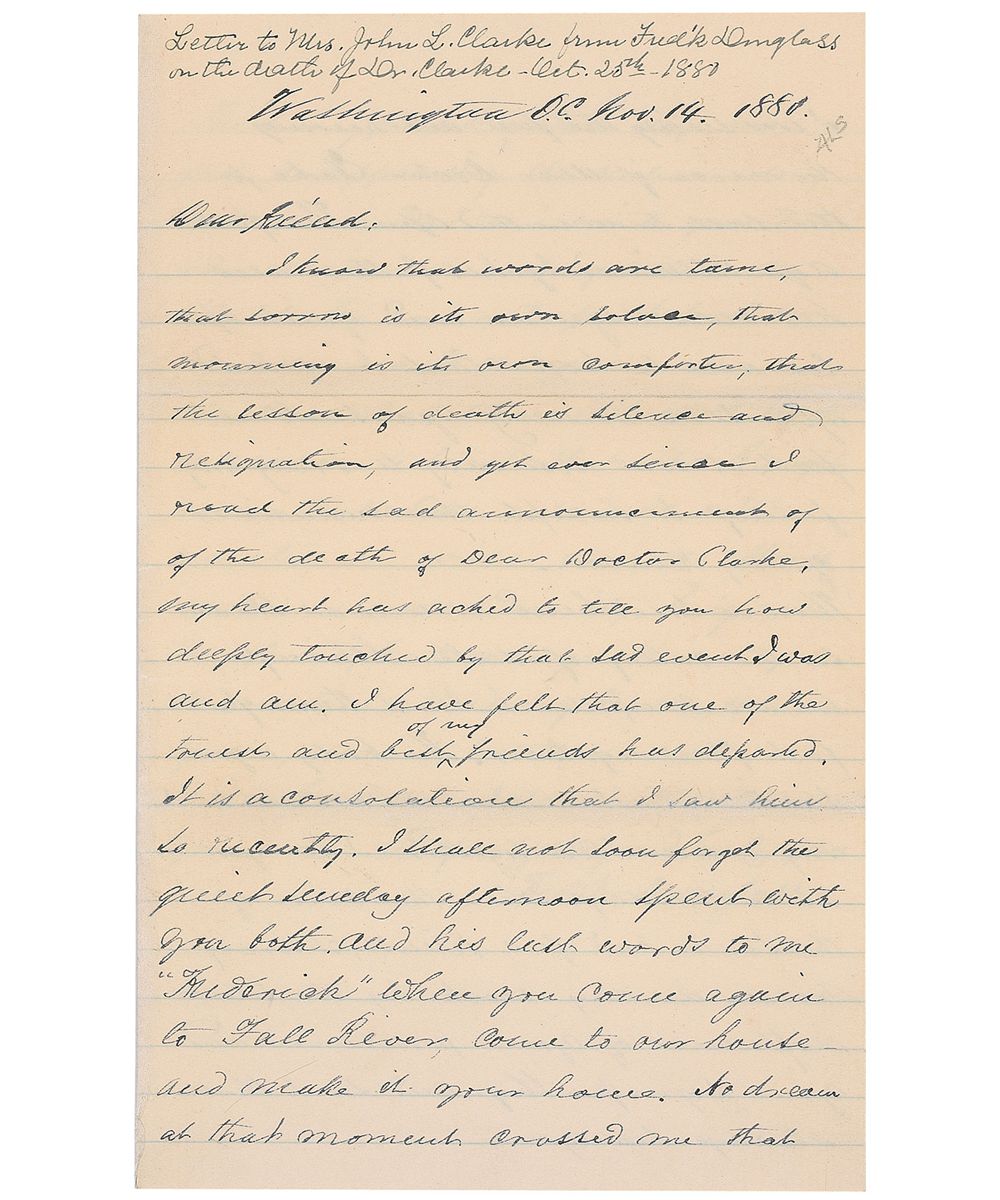 Letter to Mrs. John L. Clarke from Fred'k Douglass
on the death of Dr. Clarke - Oct. 25th - 1880
Washington D.C. Nov. 14. 1880.
ALS
Dear Friend:
I know that words are tame,
that sorrow is its own solace, that
mourning is its own comforter, that
the lesson of death is silence and
resignation, and yet ever since I
read the sad announcement of
of the death of Dear Doctor Clarke,
my heart has ached to tell you how
deeply touched by that sad event I was
and am. I have felt that one of the
of my
truest and best friends has departed.
It is a consolation that I saw him
so recently. I shall not soon forget the
quiet sunday afternoon spent with
you both. and his last words to me
"Frederick" when you come again
to Fall River, come to our house -
and make it your home. No dream
at that moment crossed me that